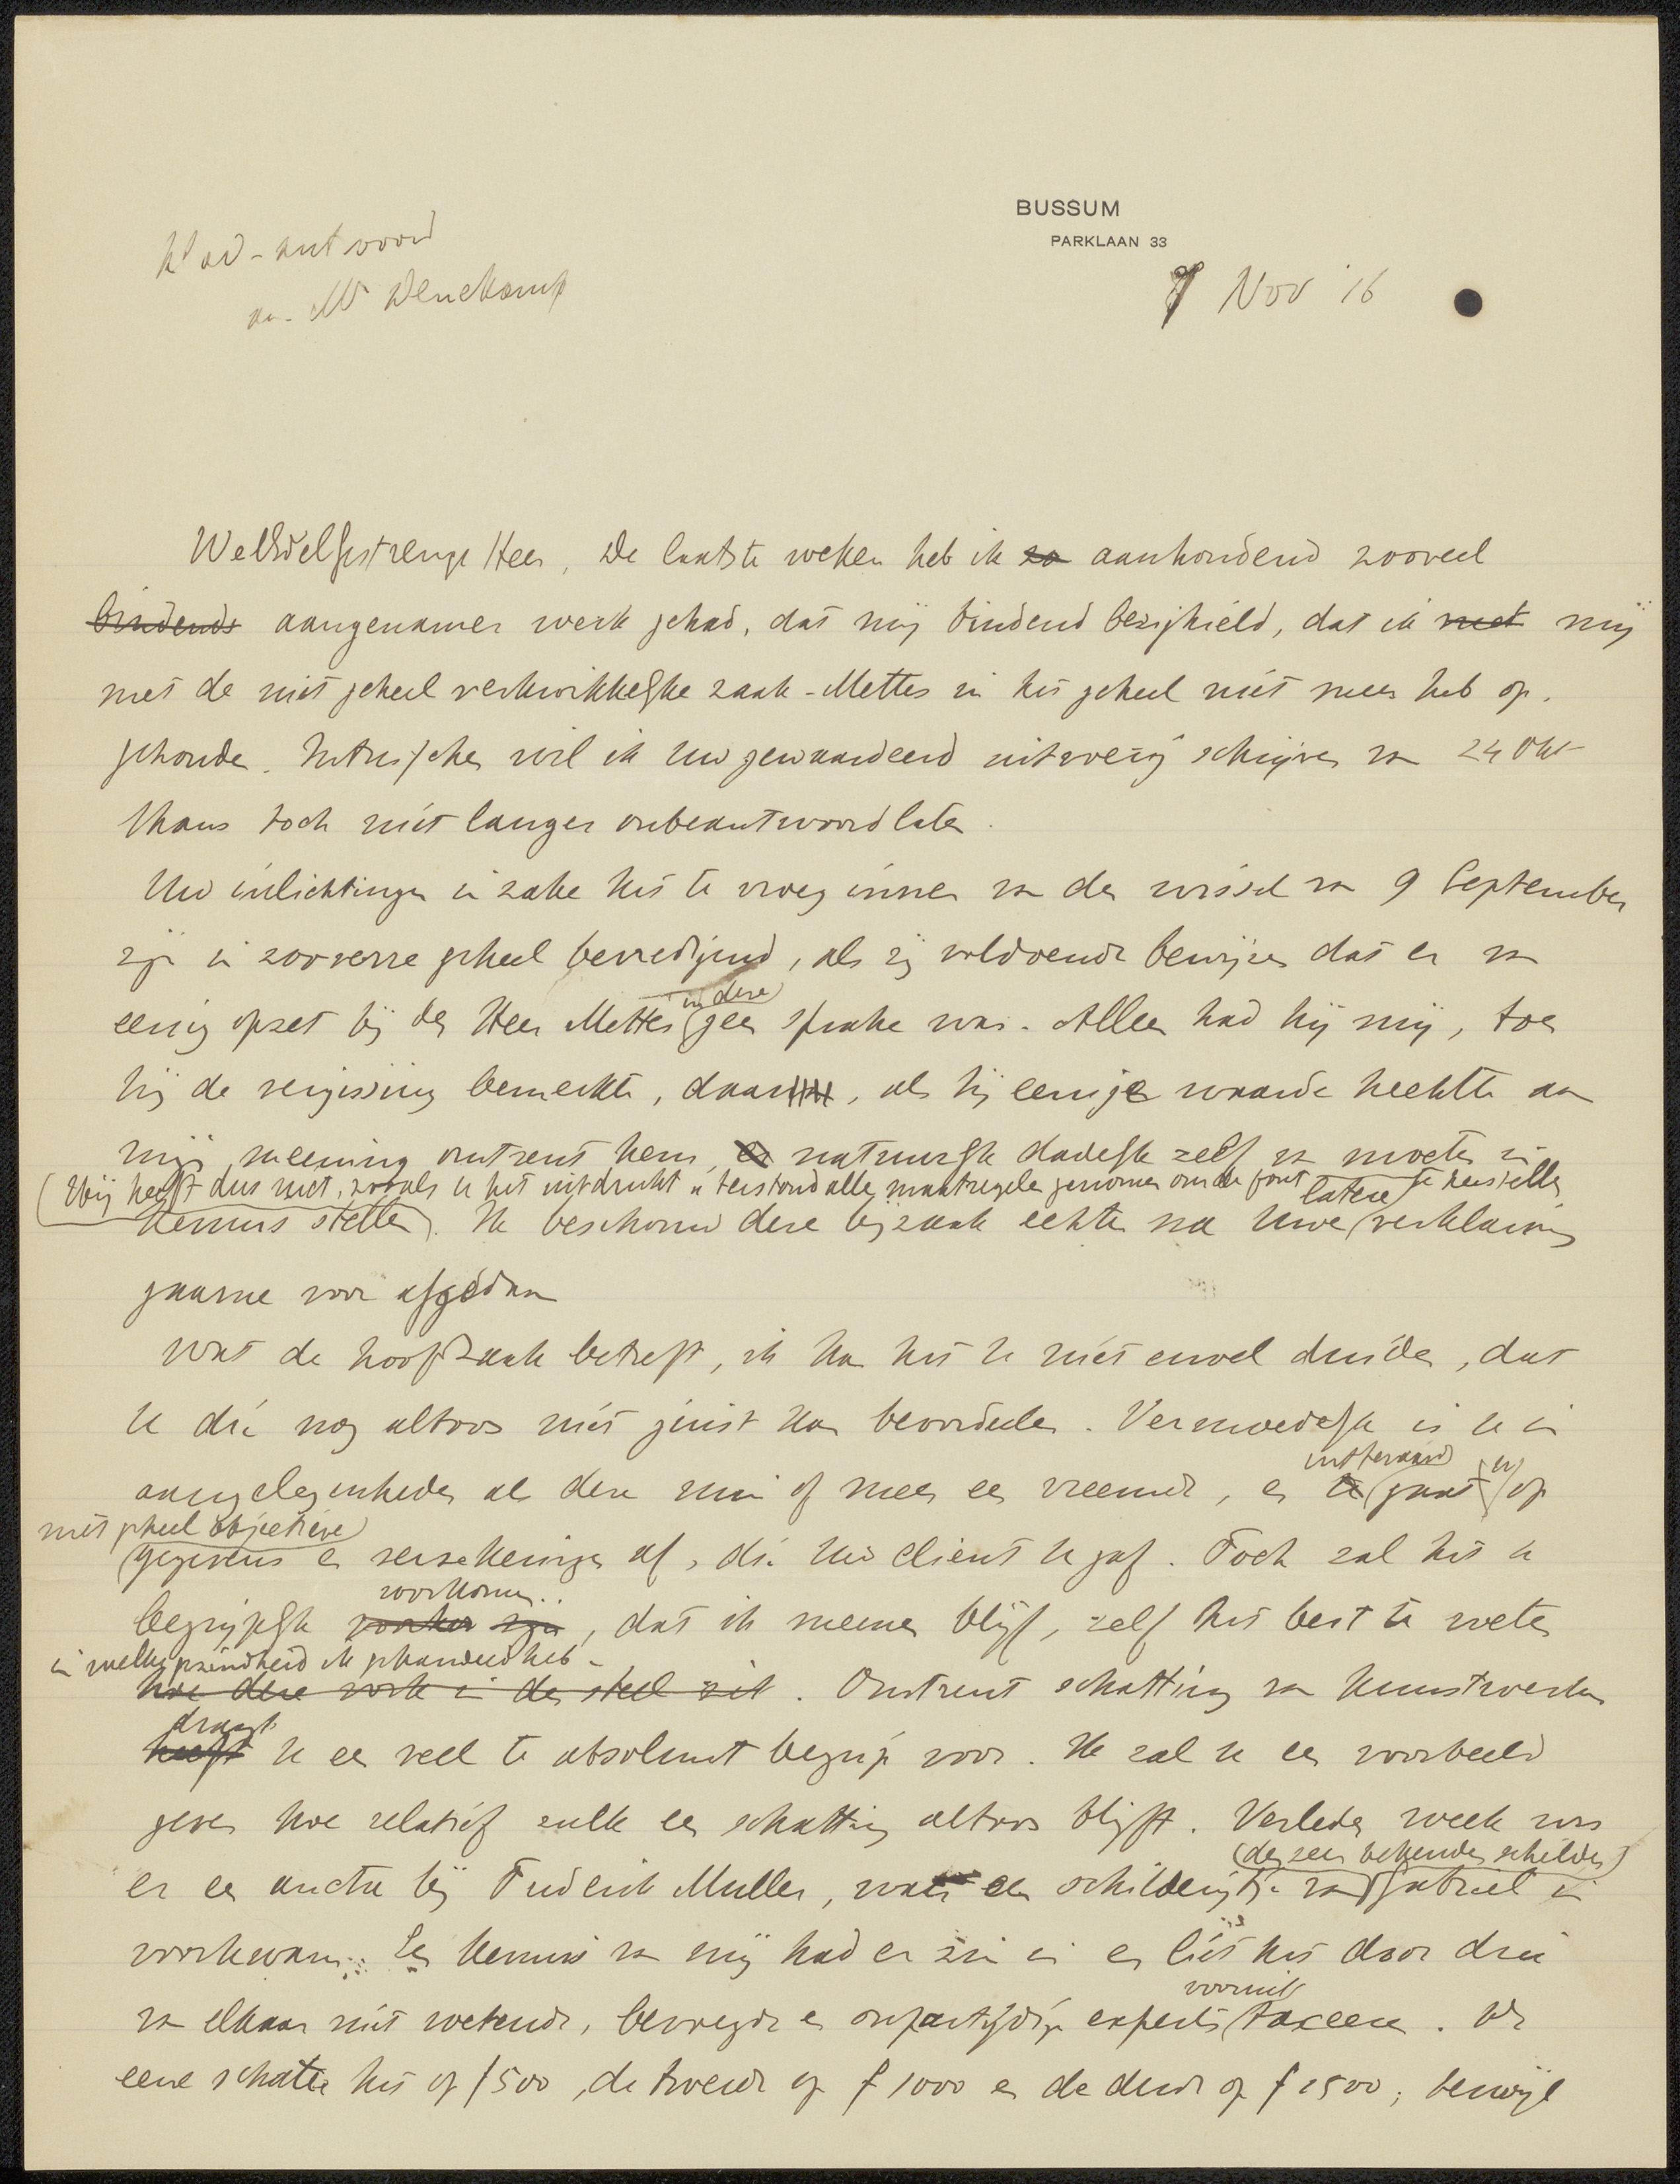 BUSSUM
PARKLAAN 33
Klad-antwoord
aan Mr Denekamp
7 Nov '16
WelEdelgestrenge Heer, De laatste weken heb ik zo aanhoudend zooveel
bindends aangenamer werk gehad, dat mij bindend bezighield, dat ik met mij
met de niet geheel verkwikkelijke zaak-Mettes in het geheel niet meer heb op-
gehouden. Intusschen wil ik Uw gewaardeerd uitvoerig schrijven van 24 Okt
thans toch niet langer onbeantwoord laten.
Uw inlichtingen in zake het te vroeg innen van den wissel van 9 September
zijn in zooverre geheel bevredigend, als zij voldoende bewijzen dat er van
in deze
eenig opzet bij den Heer Mettes geen sprake was. Alleen had hij mij, toen
hij de vergissing bemerkte, daar, als hij eenige waarde hechtte aan
mijn meening omtrent hem, natuurlijk dadelijk zelf van moeten in
(Hij heeft dus niet, zooals u het uitdrukt "terstond alle maatregelen genomen om de fout te herstellen
latere
kennis stellen). Ik beschouw deze bijzaak echter na Uwe verklaring
gaarne voor afgedaan
Wat de hoofdzaak betreft, ik kan het U niet euvel duiden, dat
U die nog altoos niet juist kan beoordeelen. Vermoedelijk is U in
uiteraard
U
aangelegenheden als deze min of meer een vreemde, en gaat op
niet geheel objectieve
gegevens en verzekeringen af, die Uw client U gaf. Toch zal het U
voorkomen
begrijpelijk zijn, dat ik meenen blijf, zelf het best te weten
in welke gezindheid ik gehandeld heb.
hoe deze vork in den steel zit. Omtrent schatting van kunstwerken
draagt
heeft U een veel te absoluut begrip voor. Ik zal U een voorbeeld
geven hoe relatief zulk een schatting altoos blijft. Verleden week was
(den zeer bekenden schilder)
er een auctie bij Frederik Muller, waar een schilderijtje van Gabriel in
voorkwam. Een kennis van mij had er zin in en liet het door drie
vooruit
van elkaar niet wetende, bevoegde en onpartijdige experts taxeeren. De
eene schatte het op f 500, de tweede op f 1000 en de derde op f 1500; terwijl